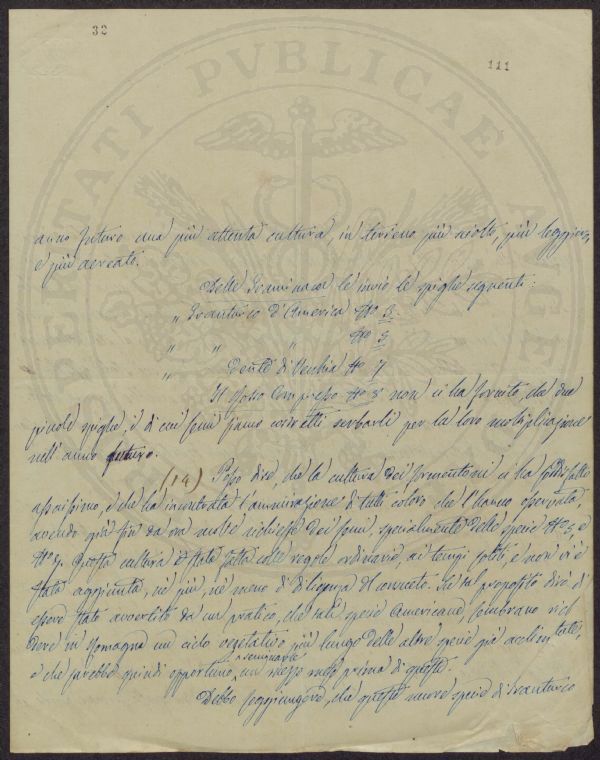 32
111
anno futuro una più attenta cultura, in terreno più sciolto, più leggiero,
e più aereato.
Delle Graminacee le invio le spighe seguenti:
" Granturco d'America No 3.
" " " No 5
" Dente di Vecchia No 7
Il Joso Compresso No 8 non ci ha fornito, che due
piccole spighe, i di cui semi siamo costretti serbarli per la loro moltiplicazione
nell'anno futuro.
(14) Posso dire, che la cultura dei formentoni ci ha soddisfatto
assaissimo, e che ha incontrata l'ammirazione di tutti coloro che l'hanno osservata,
avendo già fin da ora molte richieste dei semi, specialmente delle specie No 3, e
No 5. Questa cultura è stata fatta colle regole ordinarie, ai tempi soliti, e non vi è
stata aggiunta, nè più, nè meno di diligenza del consueto. In tal proposito dirò di
essere stato avvertito da un pratico, che tali specie Americane, sembrano richie
dere in Romagna un ciclo vegetativo più lungo delle altre specie già acclimatate,
e che sarebbe quindi opportuno seminarle un mezzo mese prima di queste.
Debbo soggiungere, che queste nuove specie di Granturco
SPERITATI PVBLICAE